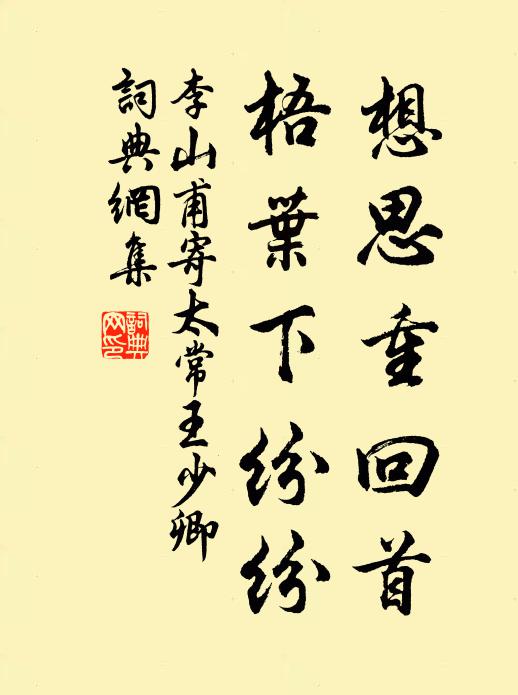 想思重回首
梧葉下紛紛
李山甫寄太常王少卿
詞典網集
詞典網印